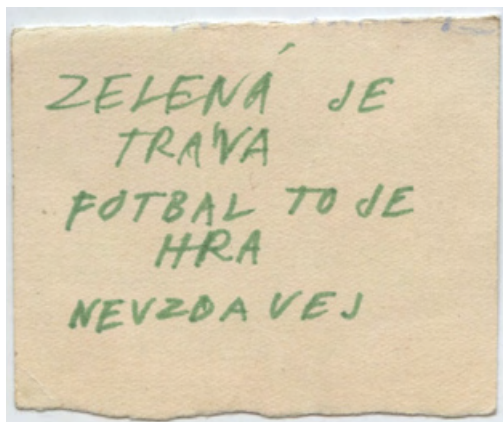 ZELENÁ JE
TRÁVA
FOTBAL TO JE
HRA
NEVZDAVEJ